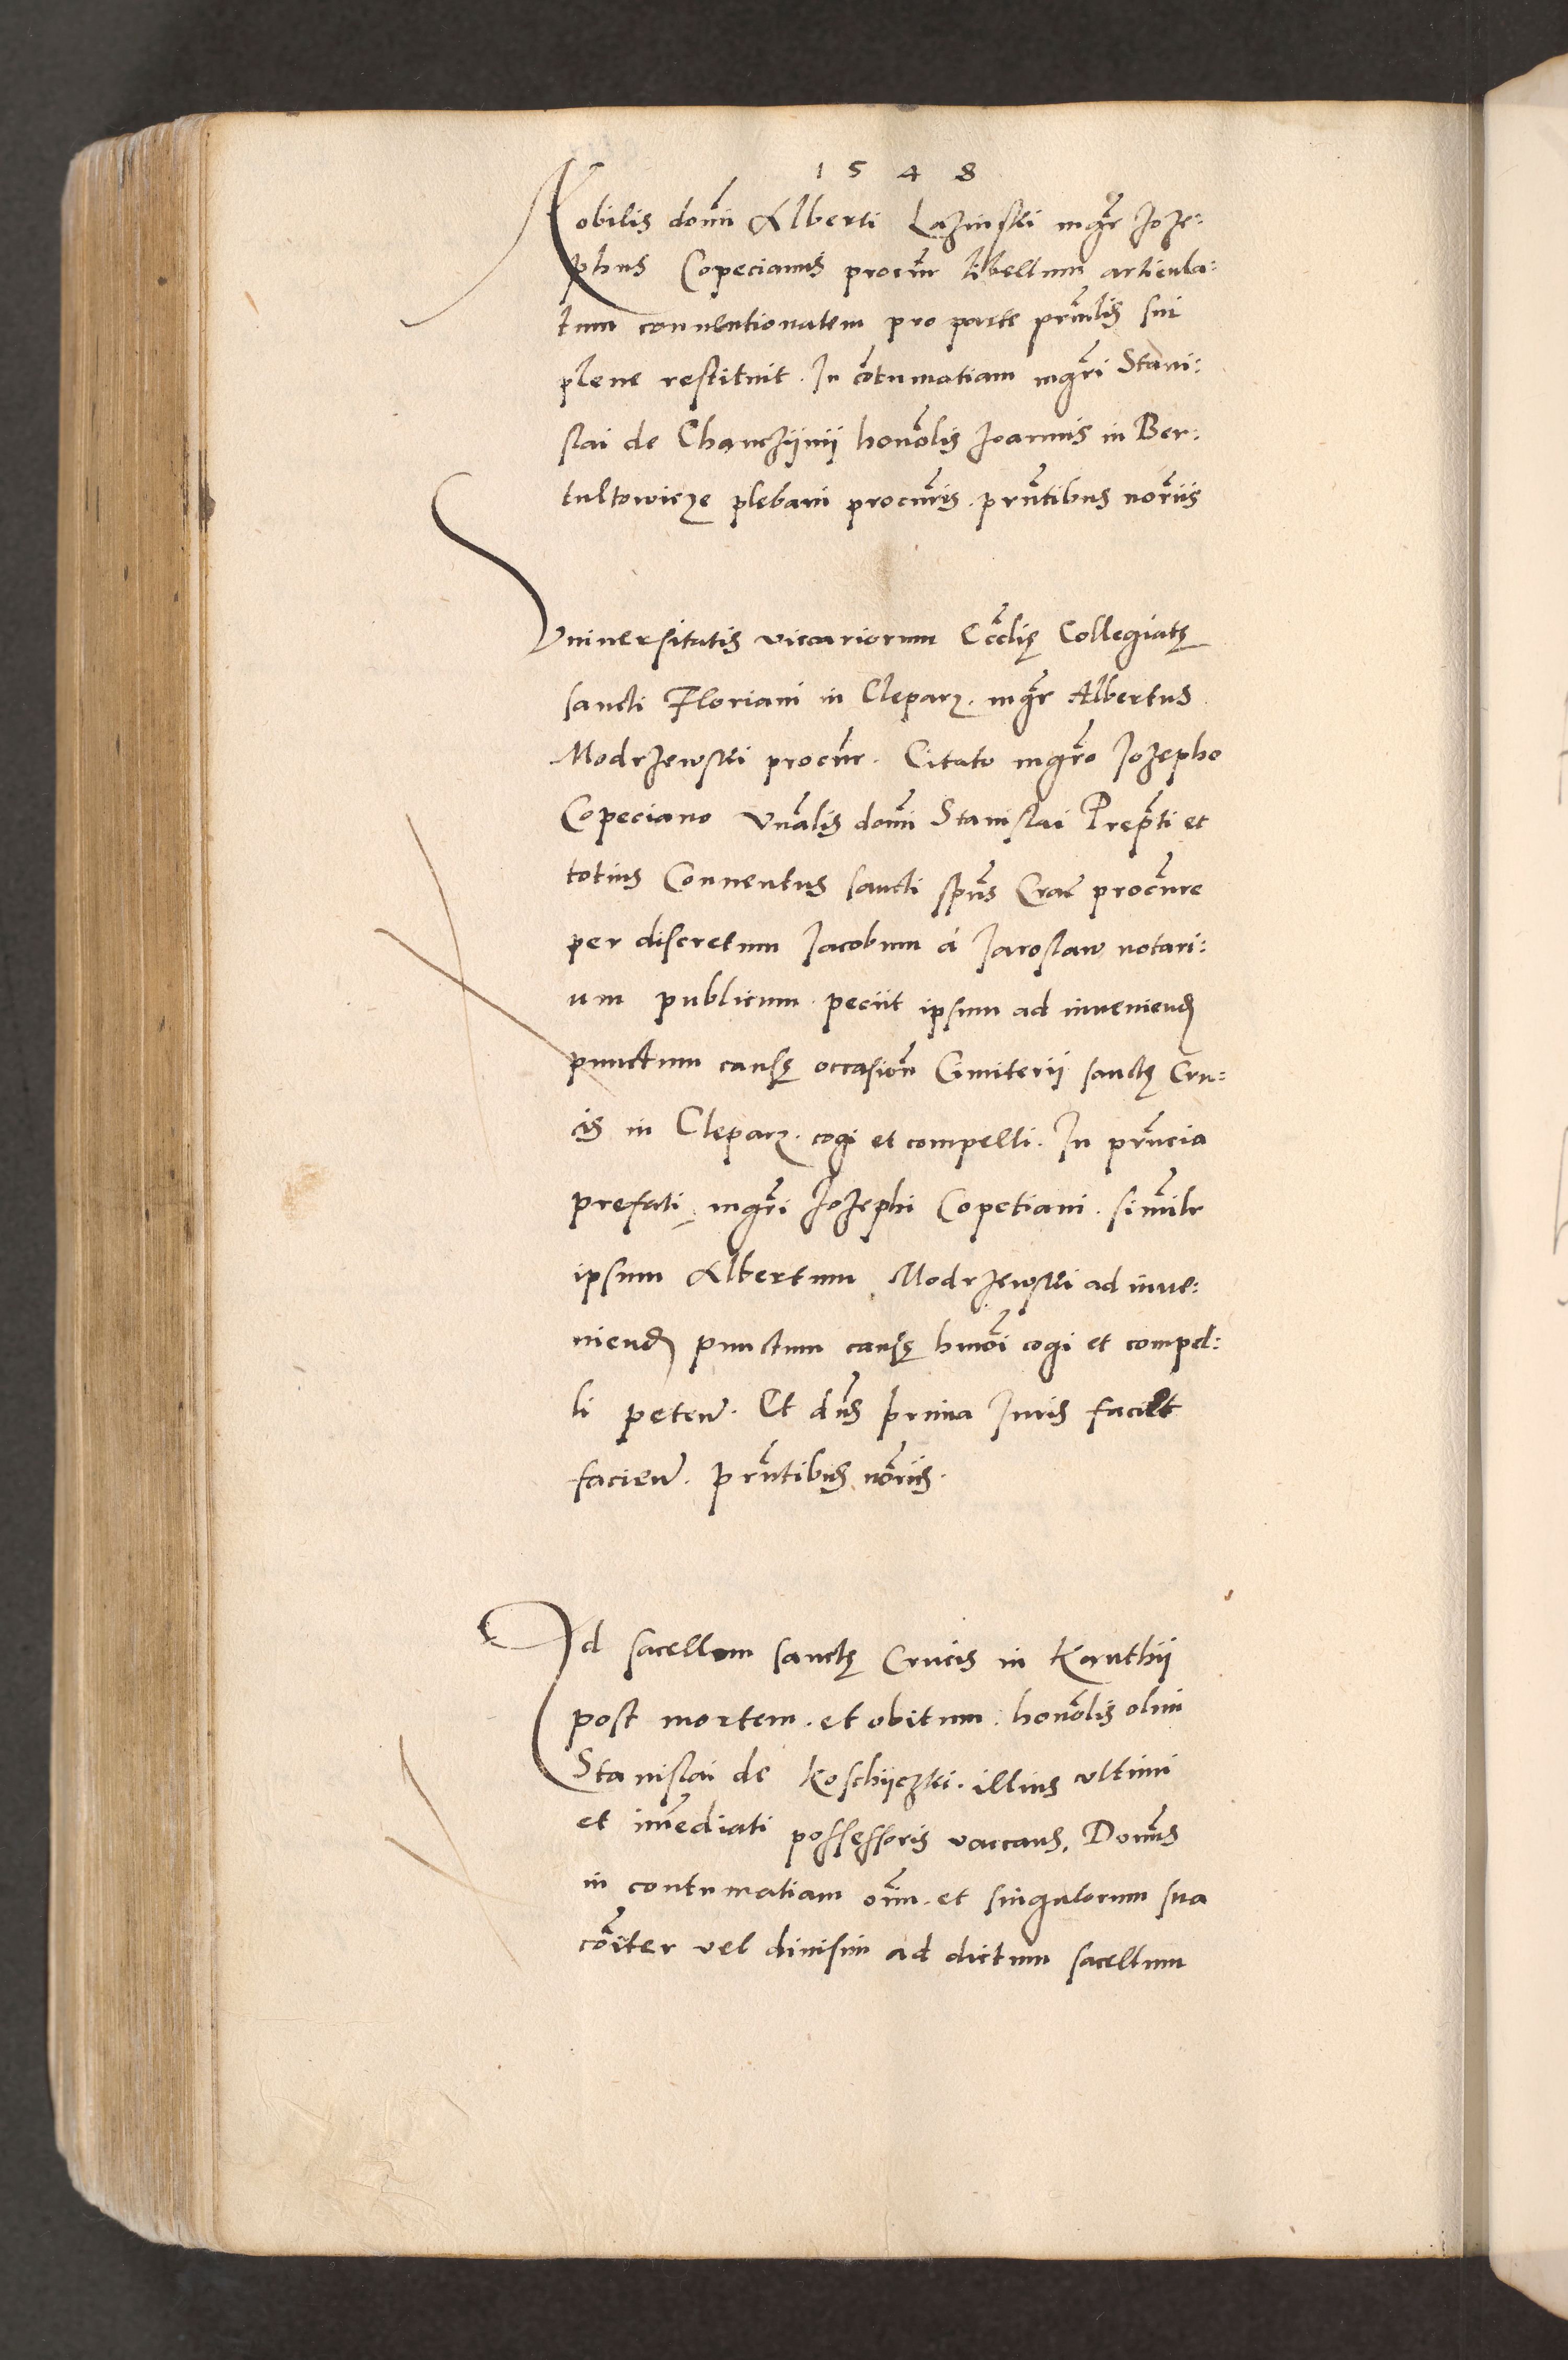 1548
Nobilis domi Alberti Lazinski mgr Joze:
phus Copecianus procur libellum articula:
tum conventionalem pro parte prncilis sui
plene restituit. In cotumatiam mgri Stani:
slai de Chanczijnij honolis Joannis in Ber:
tultowicze plebani procuris. prntibus noriis
Vniuersitatis vicariorum Ecclię Collegiatę
sancti Floriani in Cleparz. mgr Albertus
Modrzewski procur. Citato mgro Jozepho
Copeciano Vnalis domi Stanislai Prepti et
totius Conuentus sancti spus Crac procure
per discretum Jacobum á Jaroslaw notari:
um publicum. peciit ipsum ad inueniend
punctum causę occasion Cimiterii sanctę Cru:
cis in Cleparz. cogi et compelli. In prncia
prefati mgri Jozephi Copetiani. similr
ipsum Albertum Modrzewski ad inue:
niend punctum causę hmoi cogi et compel:
li peten. Et dns prima Juris facilt
facien. prntibus noriis.
Ad sacellum sanctę Crucis in Kanthij
post mortem. et obitum. honolis olim
Stanislai de Koschijczki. illius vltimi
et imediati possessoris vaccans. Domus
in contumatiam oim. et singulorum sua
coiter vel diuisim ad dictum sacellum